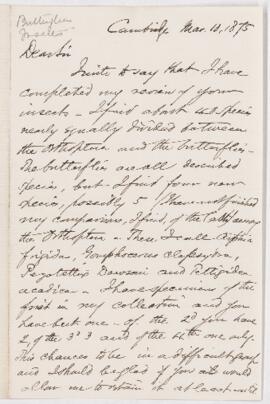 Butterflies
Insects
Cambridge Mar. 12, 1875
Dear Sir
I write to say that I have
completed my review of your
insects. I find about 40 species
nearly equally divided between
the Orthoptera and the butterflies.
The butterflies are all described
species, but I find four new
species, possibly 5 (I have not finished
my comparisons, I find, of the
the Orthoptera. These I call
frigidus, Gomphocerus clepsydra,
Pezotettix Dawsoni and Tettigidea
acadica. I have specimens of the
first in my collection and you
have but one. Of the 2d you have
2, of the 3d 3 and of the 4th one only.
This chances to be in a difficult group
and I should be glad if you
allow me to retain it at least until